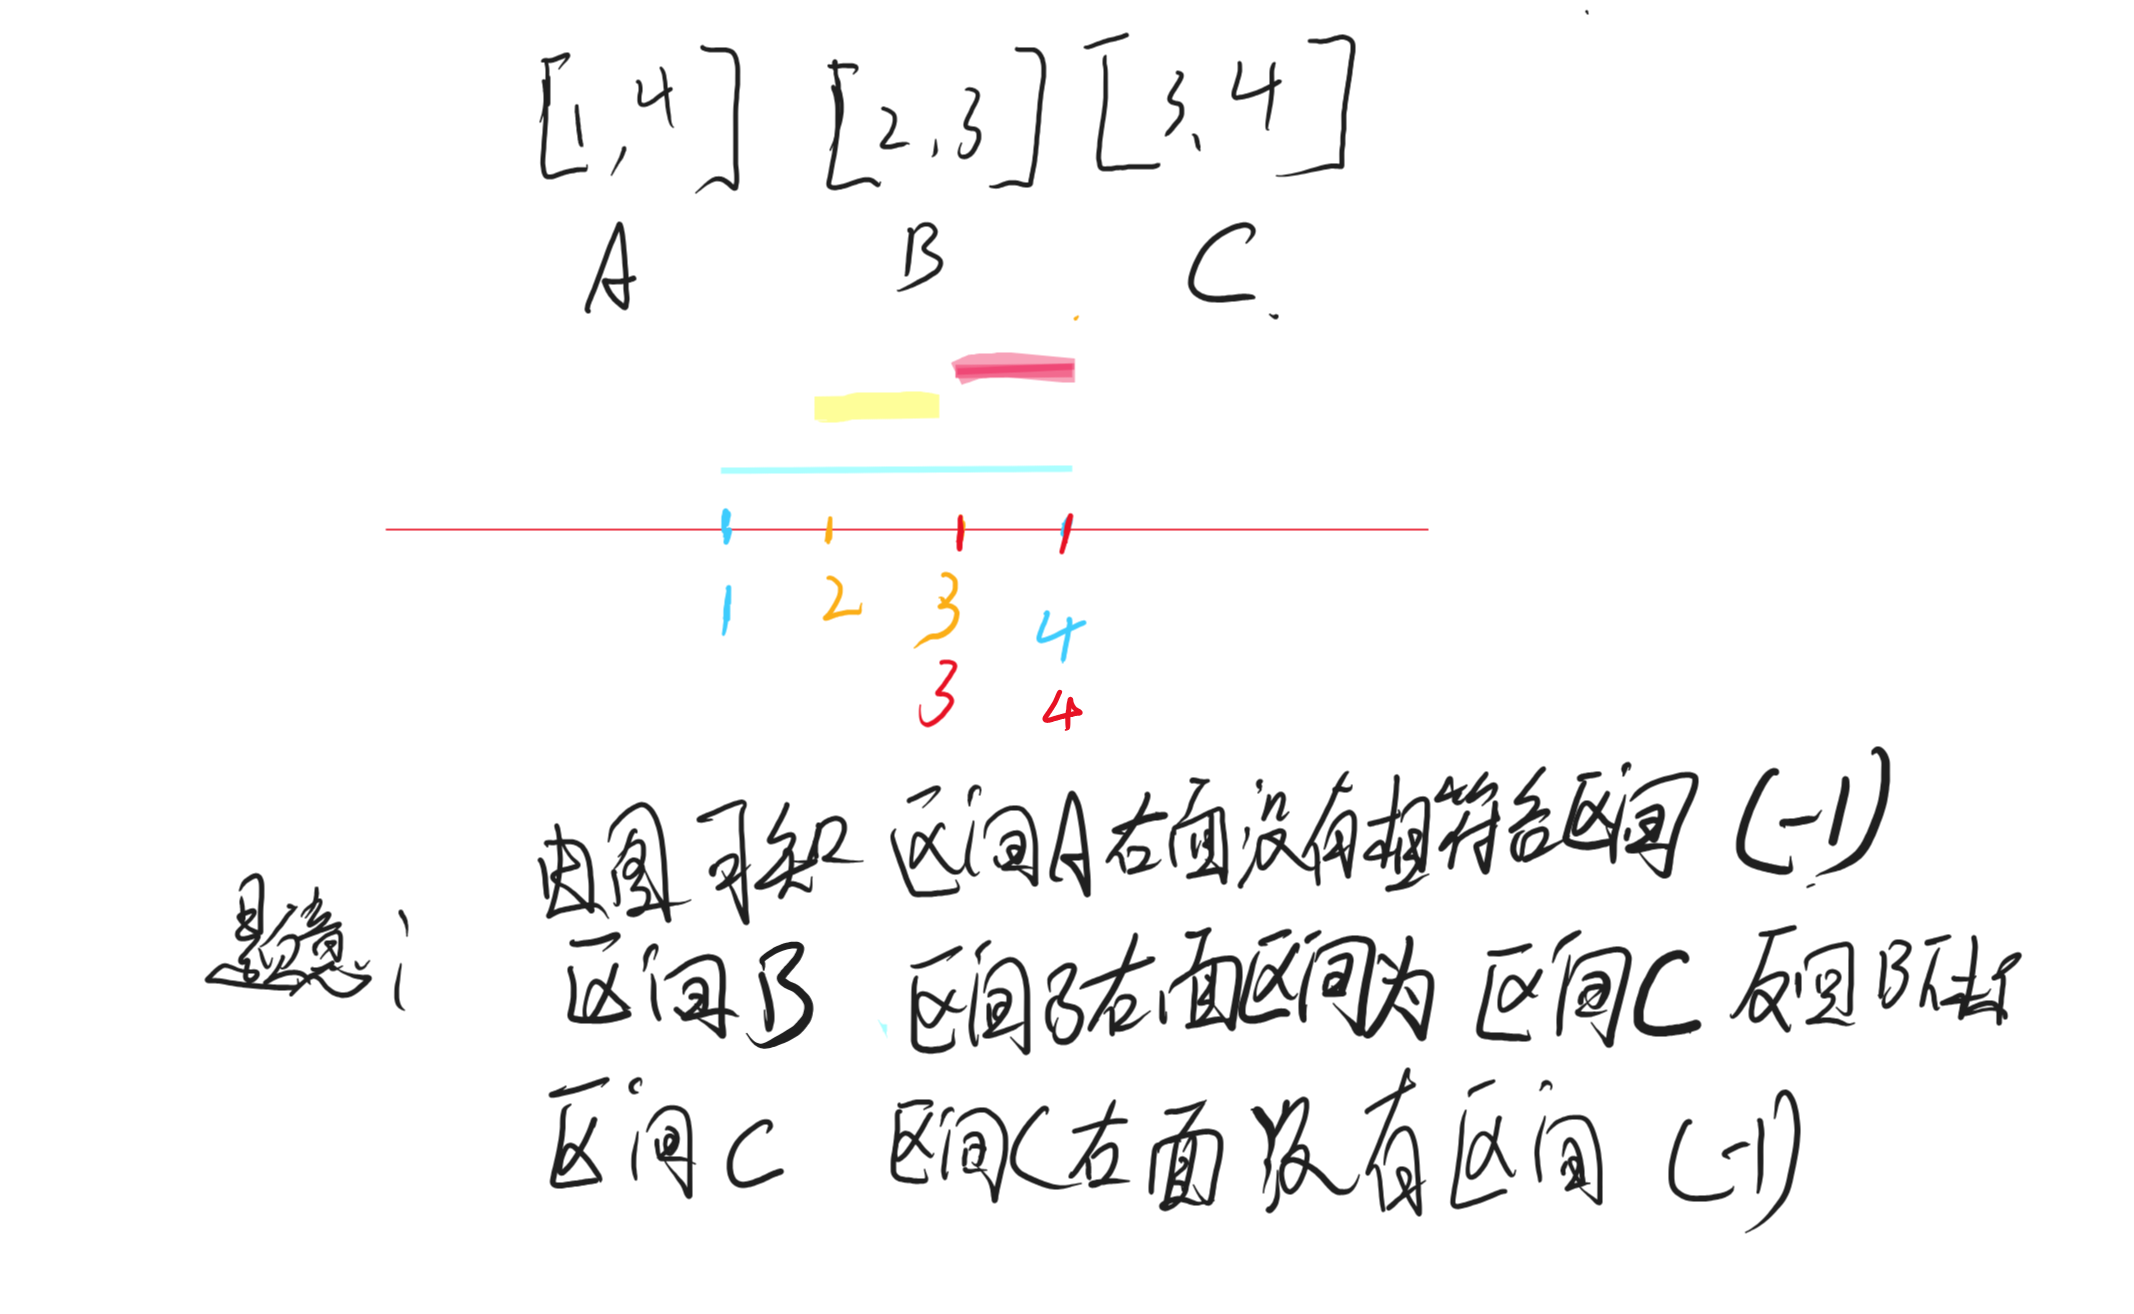 [1,4] [2,3] [3,4]
A B C
1 2 3 4
3 4
由图可知 区间A右面没有相符合区间 (-1)
题意:
区间B 区间B右面区间为 区间C 返回B下
区间C 区间C右面没有区间 (-1)